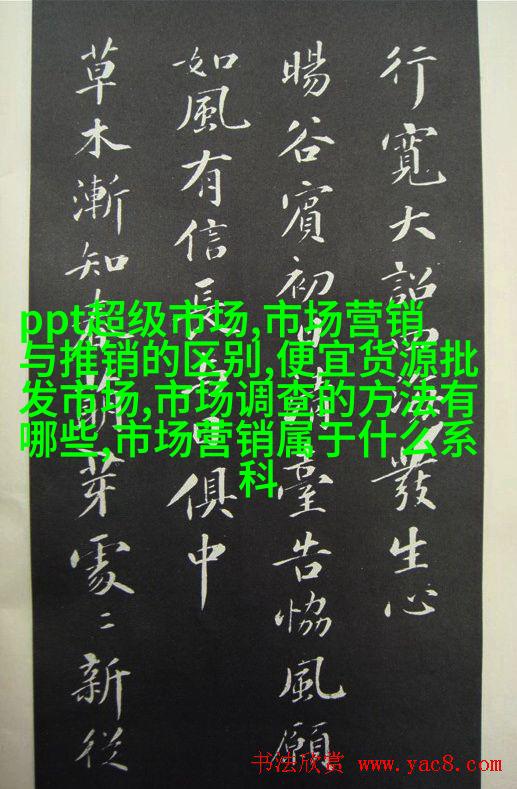 行寬大詔四海發生心
暘谷賓初日清臺告恊風願
如風有信長與日俱中
草木漸知春萌芽處〻新從
ppt超级市场,市场营销
与推销的区别,便宜货源批
发市场,市场调查的方法有
哪些,市场营销属于什么系
科
书法欣赏 www.yac8.com